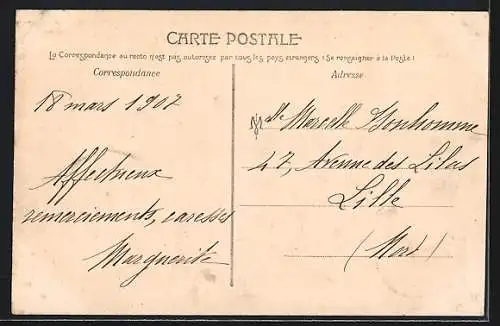 CARTE POSTALE
La Correspondance au recto n'est pas autorisée par tous les pays étrangers (Se renseigner à la Poste)
Correspondance
Adresse
18 mars 1907
Affectueux
remerciements, caresses
Marguerite
Mlle Marcelle Bonhomme
47, Avenue des Lilas
Lille
(Nord)